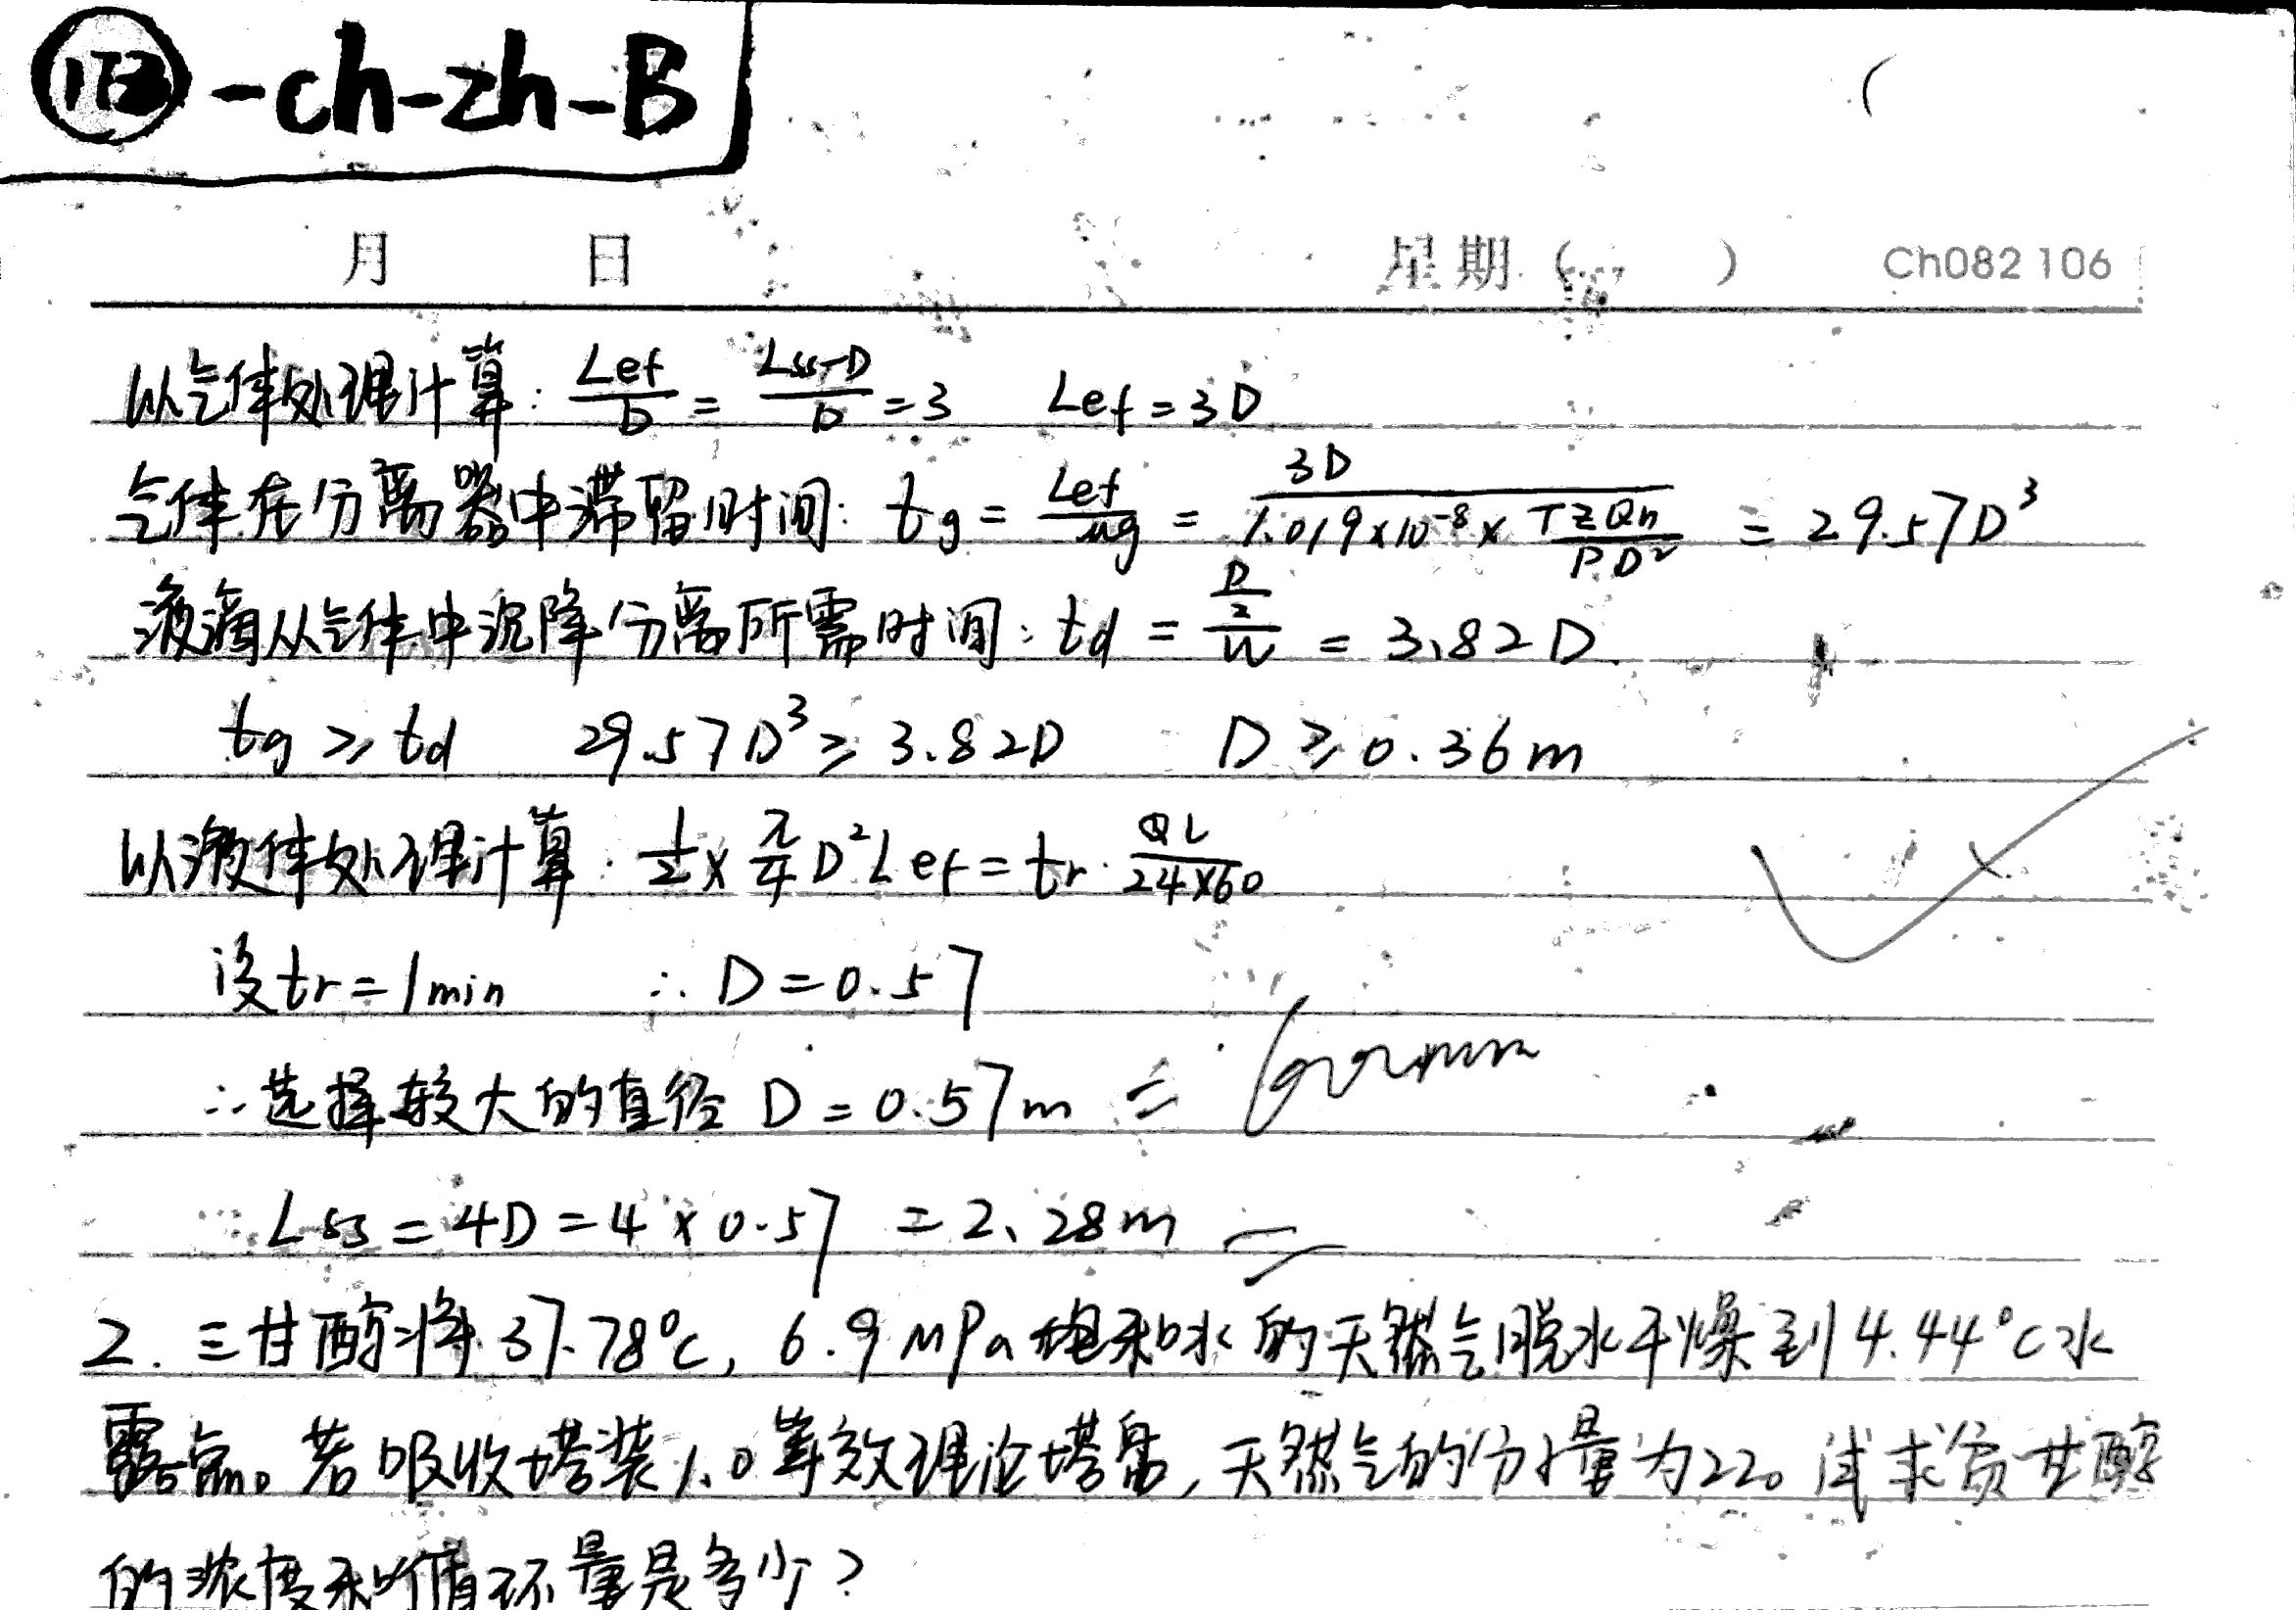 -ch-zh-B
月 日 星期( ) Ch082 106
以气体处理计算: Lef/D = Lss-D/D = 3 Lef = 3D
气体在分离器中滞留时间: tg = Lef/ug = 3D/(1.019×10^-8 × TZQn/PD²) = 29.57D³
液滴从气体中沉降分离所需时间: td = (D/2)/u = 3.82D
tg ≥ td 29.57D³ ≥ 3.82D D ≥ 0.36m
以液体处理计算: 1/2 × π/4 D² Lef = tr · QL/24×60
设tr = 1min ∴ D = 0.57
∴选择较大的直径 D = 0.57m = 600mm
∴ Lss = 4D = 4 × 0.57 = 2.28m
2. 三甘醇将37.78°C, 6.9MPa饱和水的天然气脱水干燥到4.44°C水
露点。若吸收塔装1.0等效理论塔盘,天然气的分子量为22。试求贫甘醇
的浓度和循环量是多少?